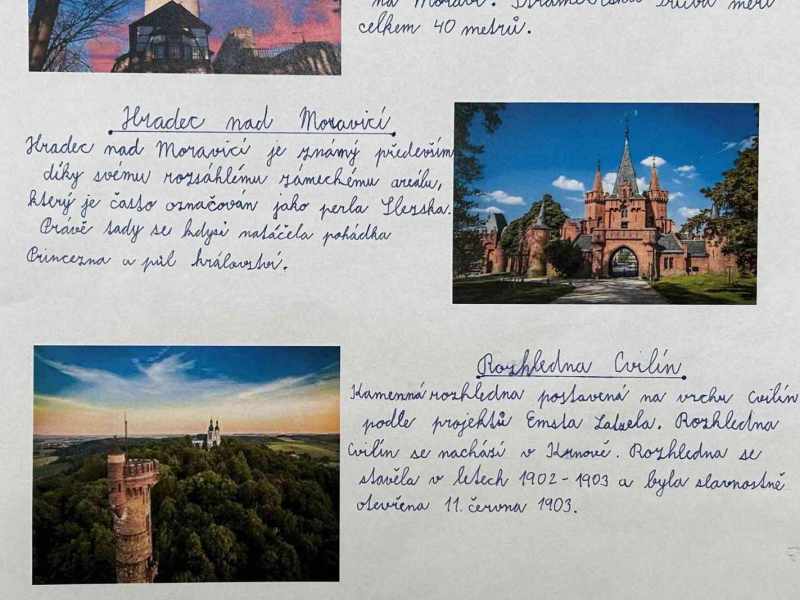 na Moravě.
celkem 40 metrů.
Hradec nad Moravicí
Hradec nad Moravicí je známý především
díky svému rozsáhlému zámeckému areálu,
který je často označován jako perla Slezska.
Právě tady se kdysi natáčela pohádka
Princezna a půl království.
Rozhledna Cvilín
Kamenná rozhledna postavená na vrchu Cvilín
podle projektů Ernsta Latzela. Rozhledna
Cvilín se nachází v Krnově. Rozhledna se
stavěla v letech 1902-1903 a byla slavnostně
otevřena 11. června 1903.